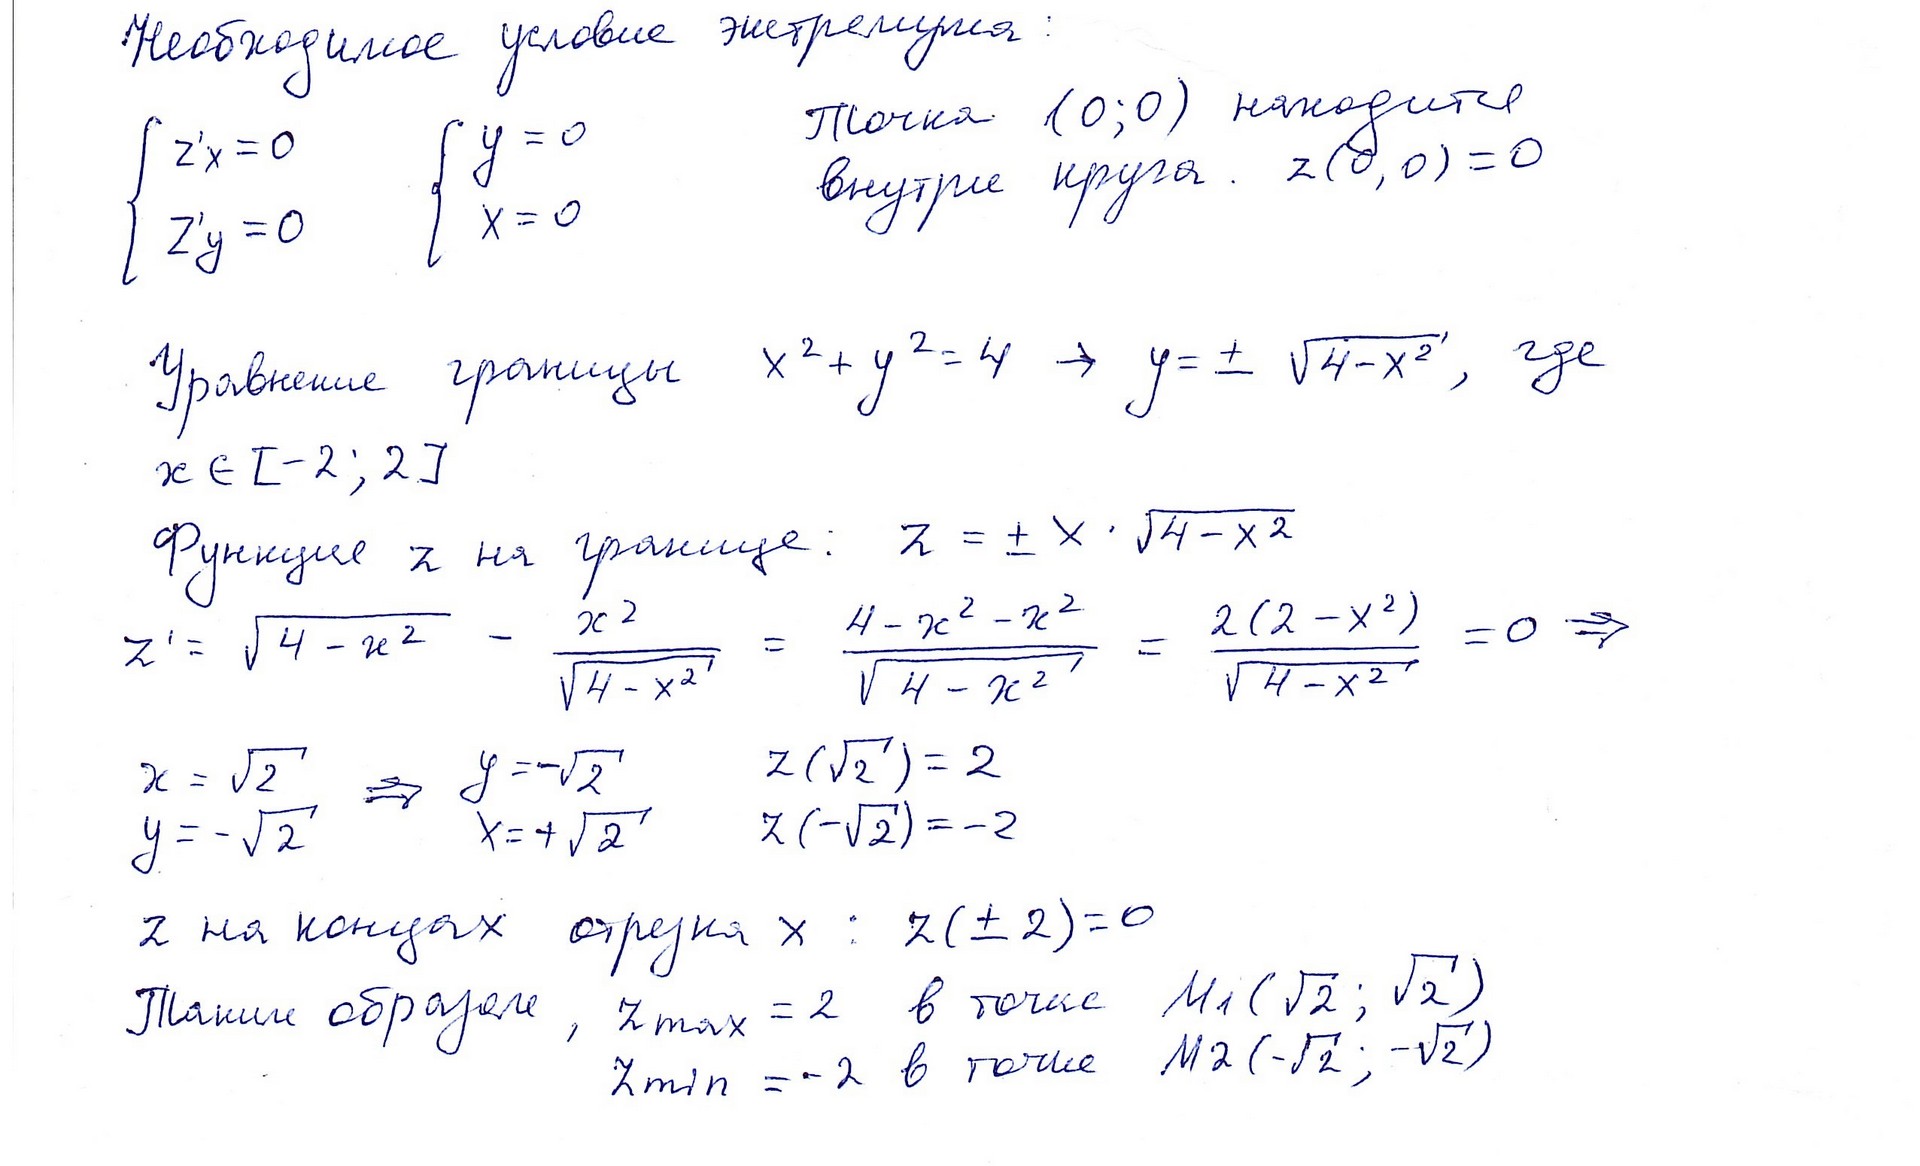 Необходимое условие экстремума:
{ z'x = 0 { y = 0 Точка (0;0) находится
z'y = 0 x = 0 внутри круга. z(0,0) = 0
Уравнение границы x² + y² = 4 → y = ± √(4-x²), где
x ∈ [-2; 2]
Функция z на границе: z = ± x · √(4-x²)
z' = √(4-x²) - x²/√(4-x²) = (4-x²-x²)/√(4-x²) = 2(2-x²)/√(4-x²) = 0 ⇒
x = √2 ⇒ y = -√2 z(√2) = 2
y = -√2 x = +√2 z(-√2) = -2
z на концах отрезка x : z(± 2) = 0
Таким образом, zmax = 2 в точке M1(√2; √2)
zmin = -2 в точке M2(-√2; -√2)